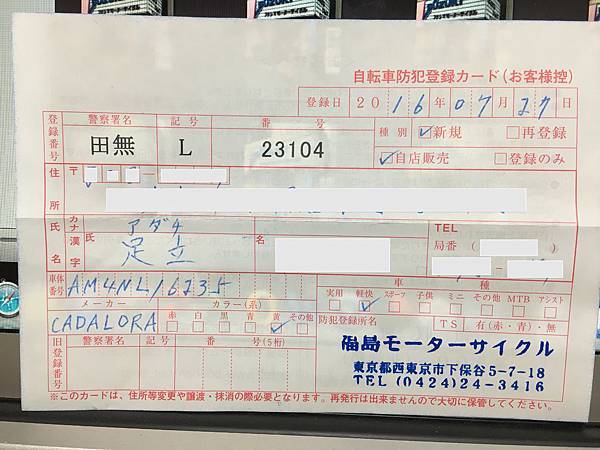 自転車防犯登録カード(お客様控)
登録日 2016年07月27日
登録番号 警察署名 記号 番号
田無 L 23104
種別 新規 再登録
自店販売 登録のみ
住所 〒
氏名 カナ 漢字 氏 アダチ 足立 名
TEL
局番 ( )
車体番号 AM4NL16235
車種
実用 軽快 スポーツ 子供 ミニ その他 MTB アシスト
メーカー カラー(系)
CADALORA 赤 白 黒 青 黄 その他
防犯登録所名 TS 有(赤・青)・無
旧登録番号 警察署名 番 号(5桁)
福島モーターサイクル
東京都西東京市下保谷5-7-18
TEL (0424)24-3416
※このカードは、住所等変更や譲渡・抹消の際必要となります。再発行は出来ませんので大切に保管してください。